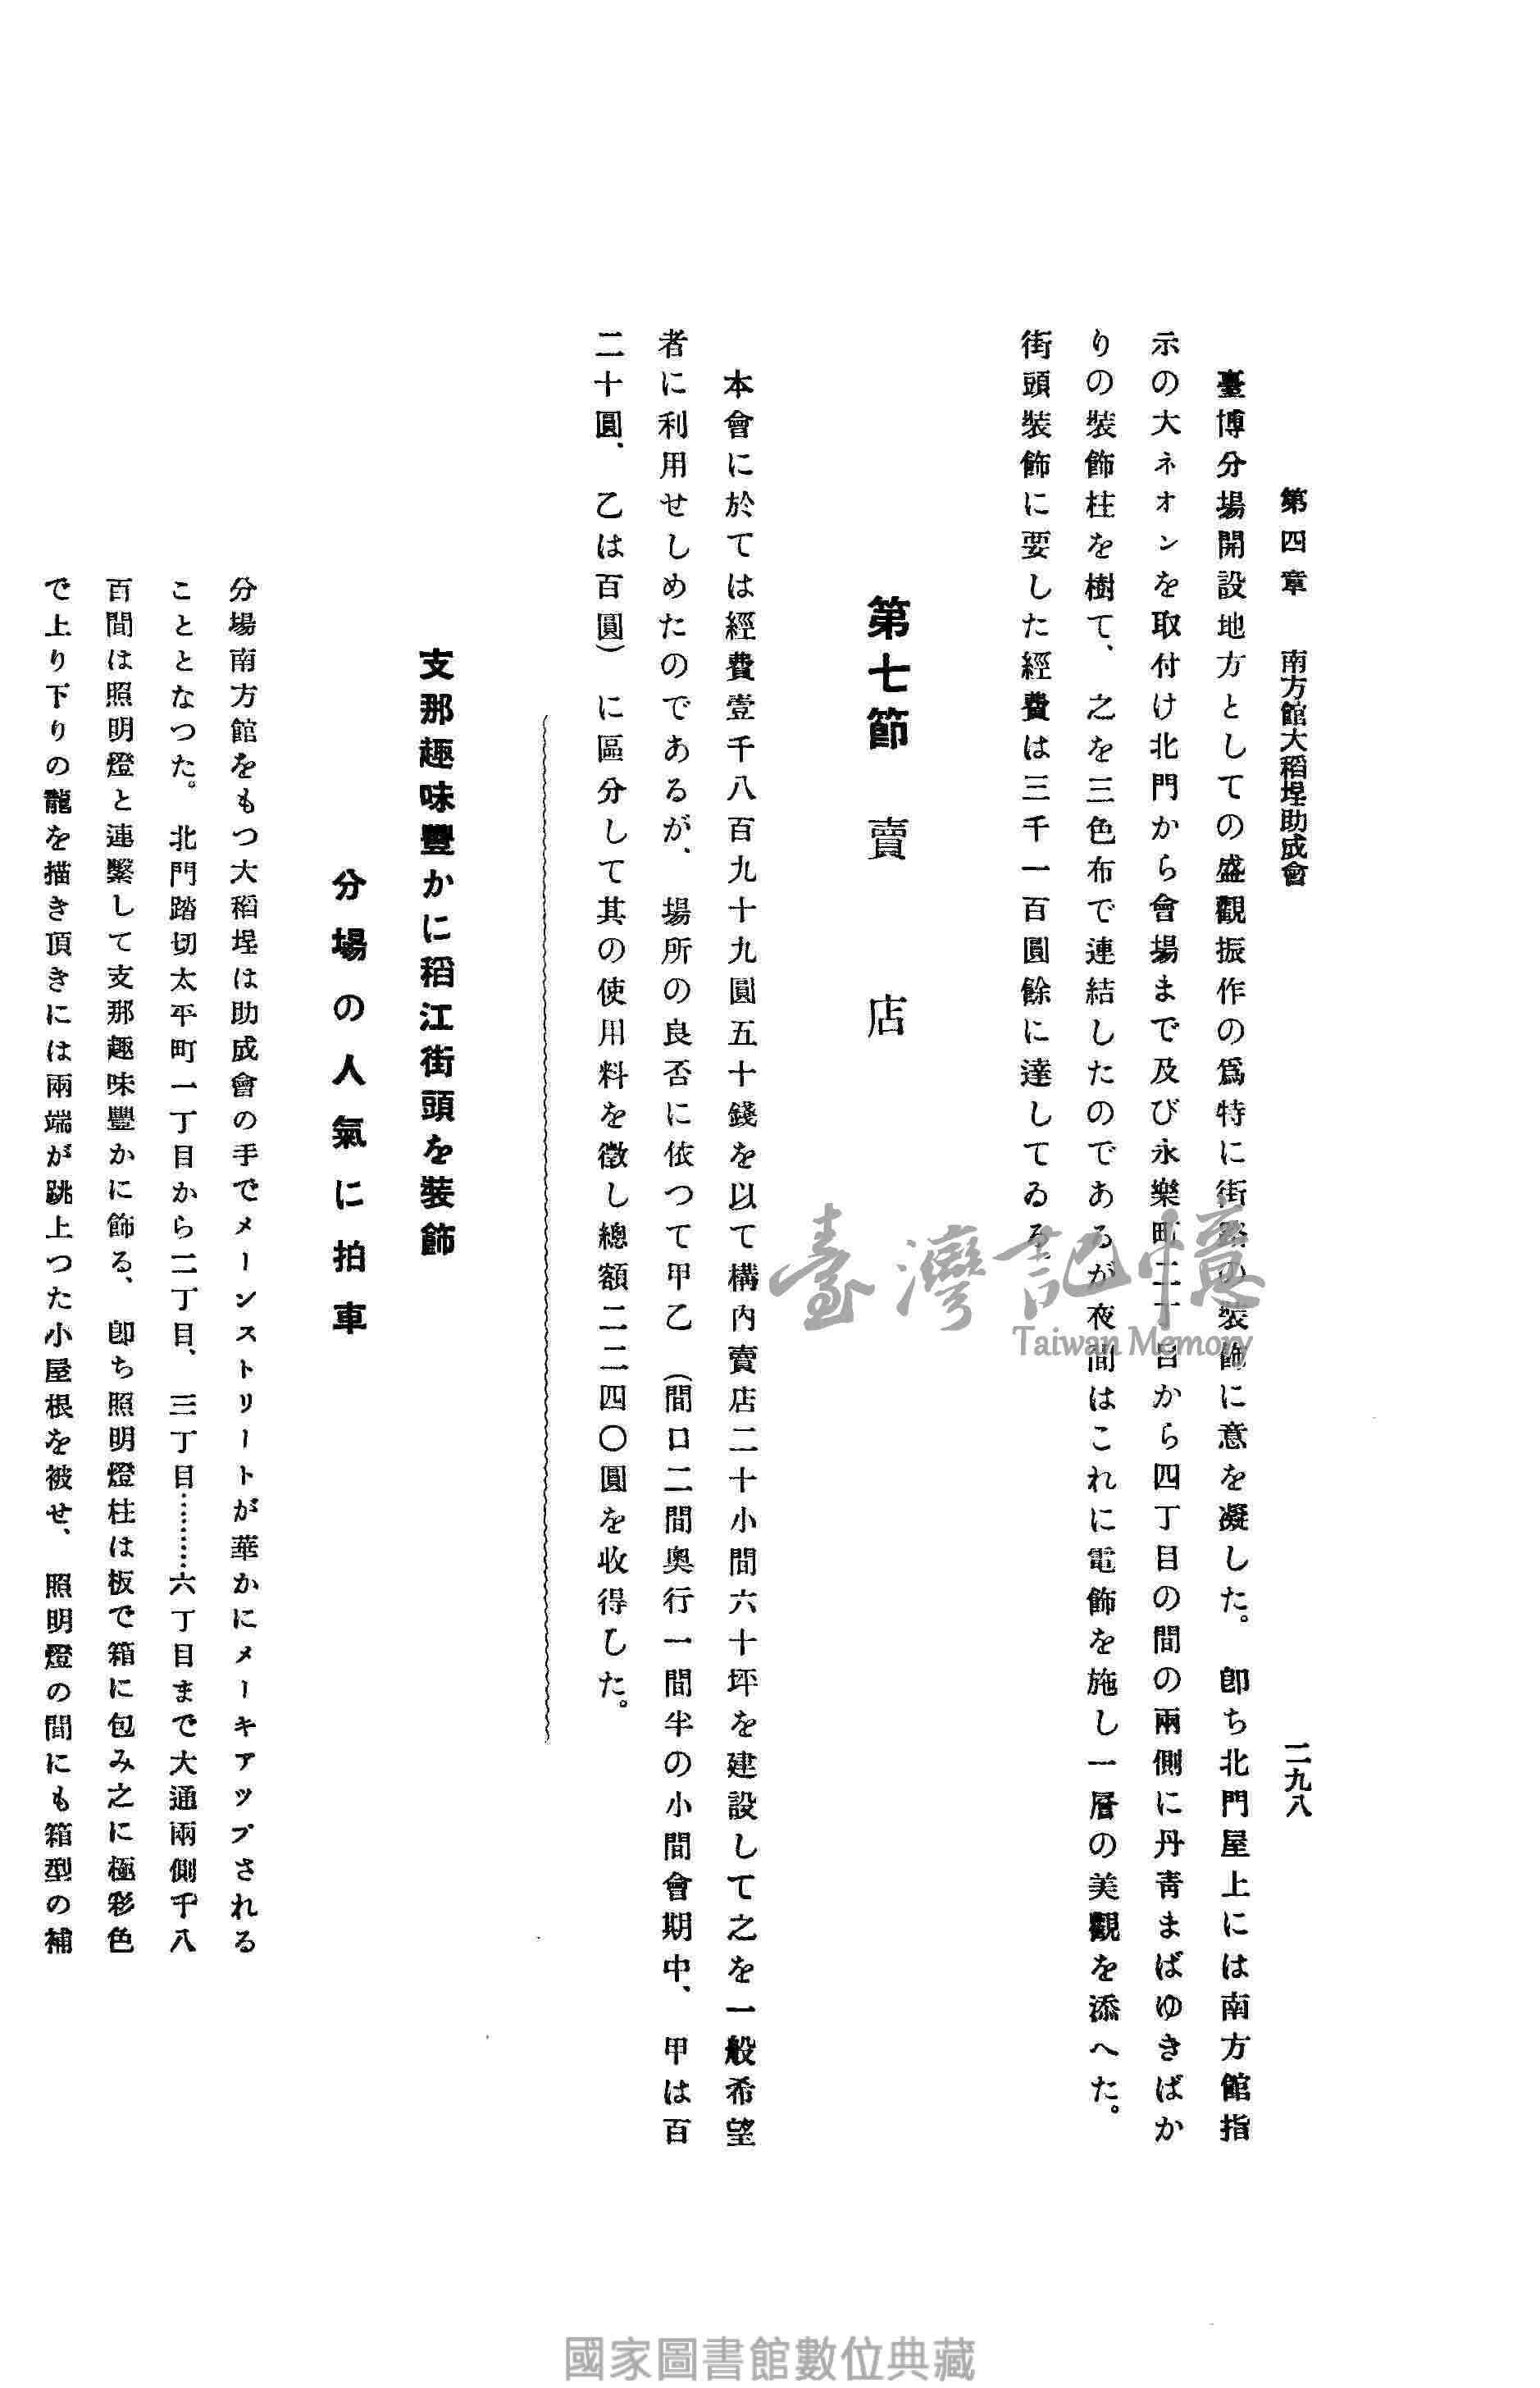 第四章 南方館大稻埕助成會 二九八
臺博分場開設地方としての盛觀振作の爲特に街路の裝飾に意を凝した。卽ち北門屋上には南方館指
示の大ネオンを取付け北門から會場まで及び永樂町二丁目から四丁目の間の兩側に丹靑まばゆきばか
りの裝飾柱を樹て、之を三色布で連結したのであるが夜間はこれに電飾を施し一層の美觀を添へた。
街頭裝飾に要した經費は三千一百圓餘に達してゐる。
第七節 賣店
本會に於ては經費壹千八百九十九圓五十錢を以て構內賣店二十小間六十坪を建設して之を一般希望
者に利用せしめたのであるが、場所の良否に依つて甲乙(間口二間奧行一間半の小間會期中、甲は百
二十圓、乙は百圓)に區分して其の使用料を徵し總額二二四〇圓を收得した。
支那趣味豐かに稻江街頭を裝飾
分場の人氣に拍車
分場南方館をもつ大稻埕は助成會の手でメーンストリートが華かにメーキアツプされる
こととなつた。北門踏切太平町一丁目から二丁目、三丁目………六丁目まで大通兩側千八
百間は照明燈と連繫して支那趣味豐かに飾る、卽ち照明燈柱は板で箱に包み之に極彩色
で上り下りの龍を描き頂きには兩端が跳上つた小屋根を被せ、照明燈の間にも箱型の補
臺灣記憶
Taiwan Memory
國家圖書館數位典藏